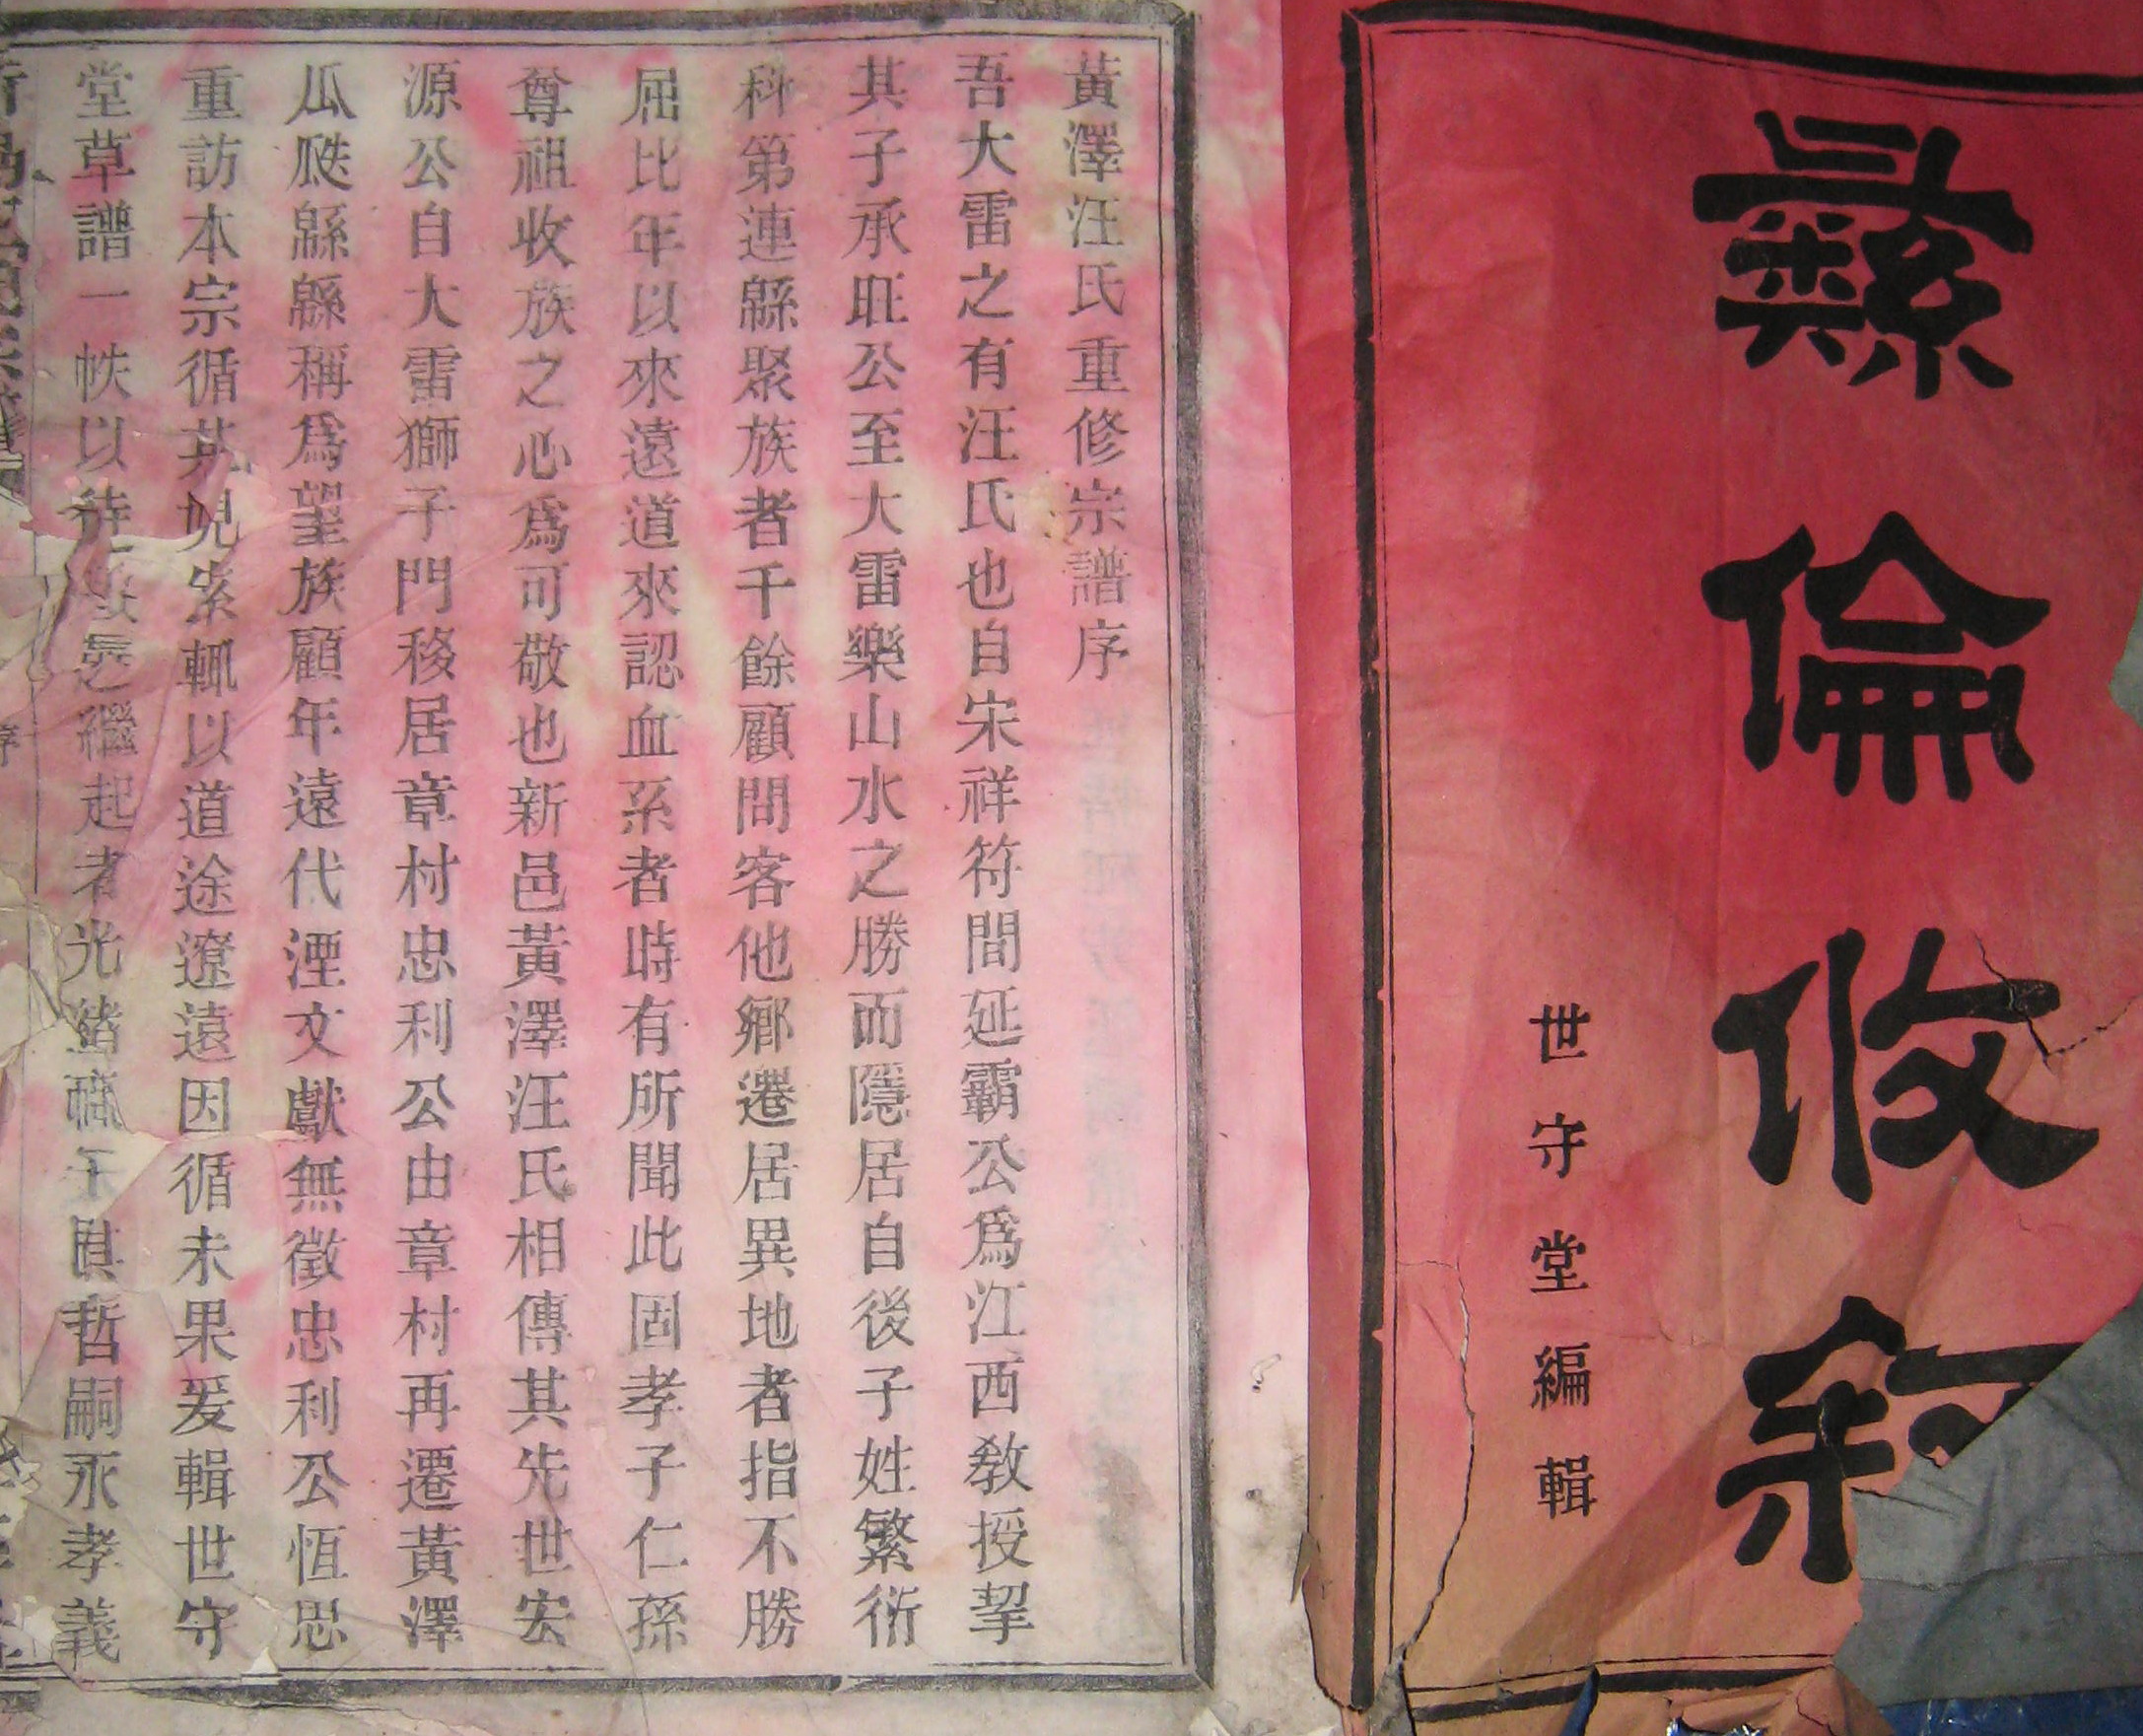 彝倫攸敘
世守堂編輯
黃澤汪氏重修宗譜序
吾大雷之有汪氏也自宋祥符間延霸公爲江西教授挈
其子承旺公至大雷樂山水之勝而隱居自後子姓繁衍
科第連緜聚族者千餘顧問客他鄉遷居異地者指不勝
屈比年以來遠道來認血系者時有所聞此固孝子仁孫
尊祖收族之心爲可敬也新邑黃澤汪氏相傳其先世宏
源公自大雷獅子門移居章村忠利公由章村再遷黃澤
瓜瓞緜緜稱爲望族顧年遠代湮文獻無徵忠利公恒思
重訪本宗循其規索輒以道途遼遠因循未果爰輯世守
堂草譜一帙以待繼起者光緒哲嗣永孝義